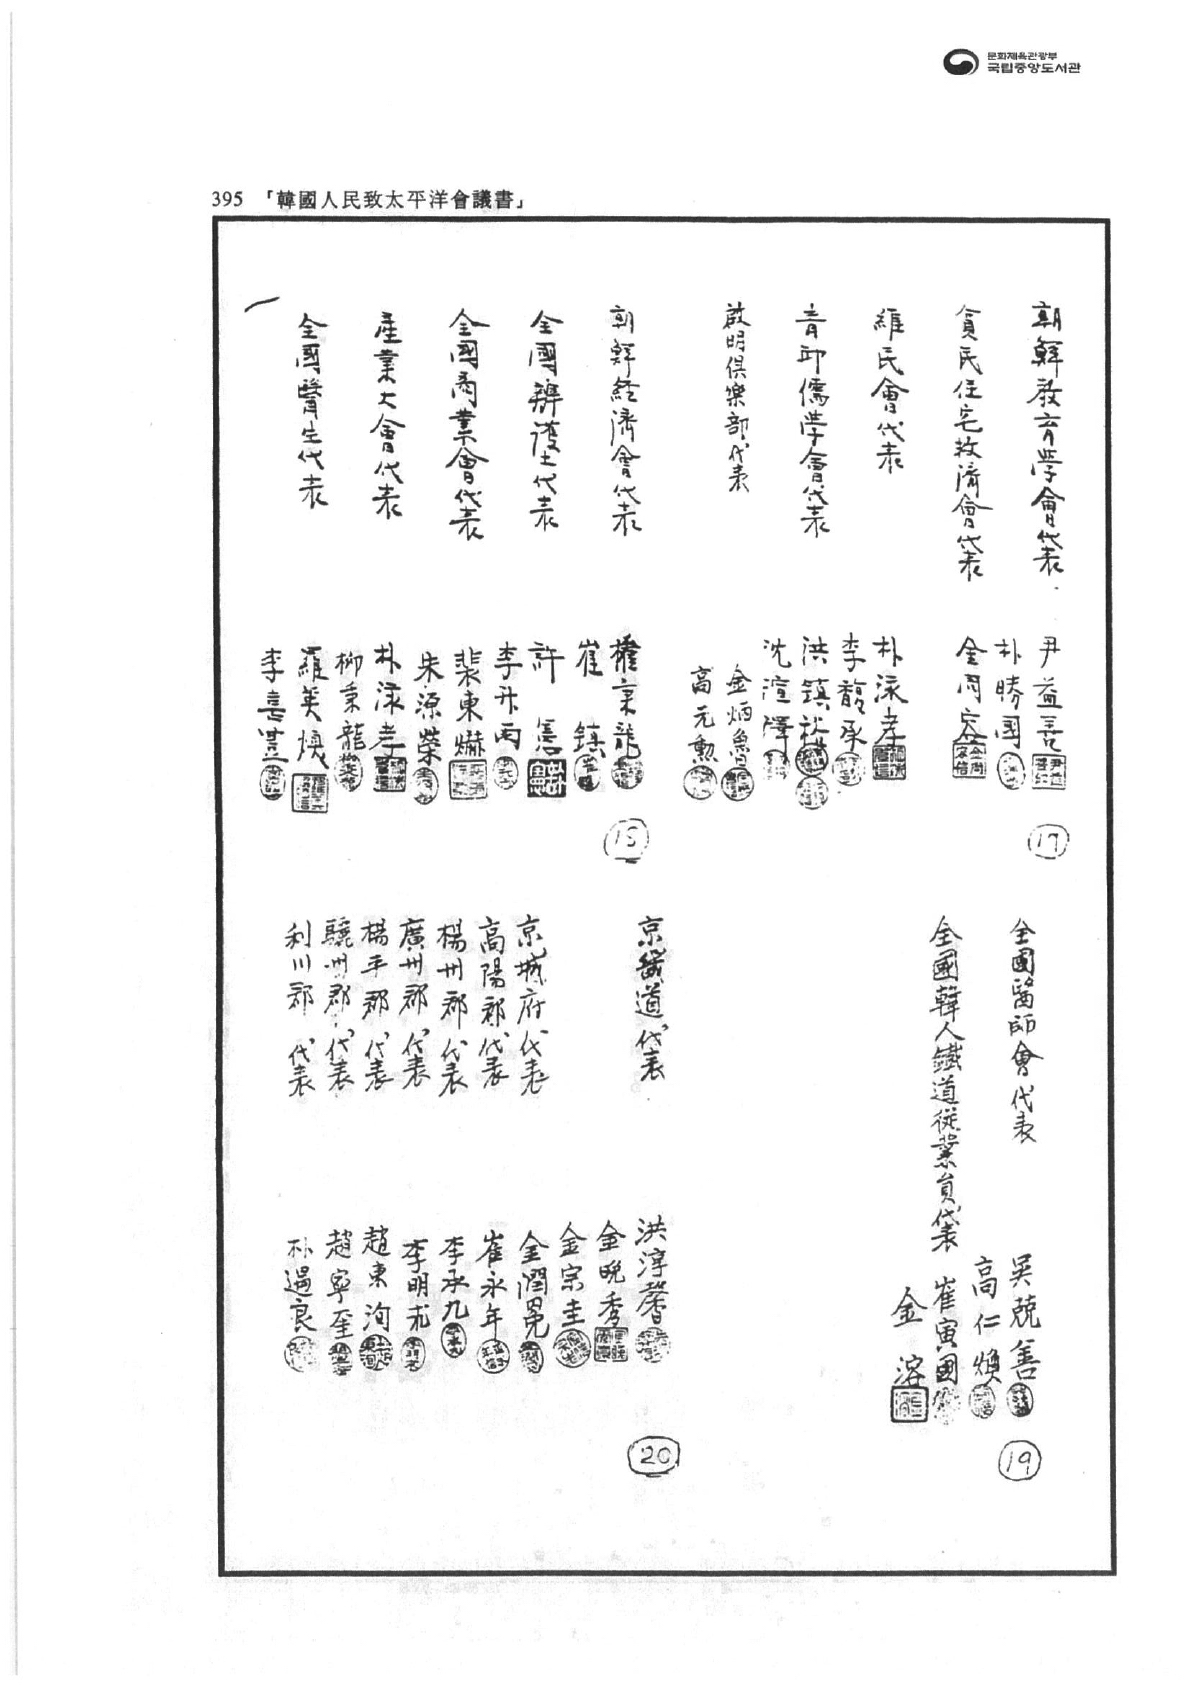 문화체육관광부
국립중앙도서관
395 「韓國人民致太平洋會議書」
朝鮮敎育學會代表
尹益善
朴勝國
貧民住宅救濟會代表
金周容
維民會代表
朴泳孝
李馥承
靑邱儒學會代表
洪鎭裕
沈瑄澤
啟明俱樂部代表
金炳魯
高元勳
17
朝鮮經濟會代表
權秉龍
崔鎭
全國辯護士代表
許憲
李升雨
全國商業會代表
裴東爀
朱源榮
產業大會代表
朴泳孝
柳秉龍
全國醫生代表
羅英煥
李喜豊
18
全國醫師會代表
吳兢善
高仁煥
全國韓人鐵道從業員代表
崔寅國
金溶
19
京畿道代表
洪淳馨
金晩秀
京城府代表
金宗圭
金潤冕
高陽郡代表
崔永年
楊州郡代表
李承九
廣州郡代表
李明求
楊平郡代表
趙東洵
驪州郡代表
趙寧奎
利川郡代表
朴遇良
20